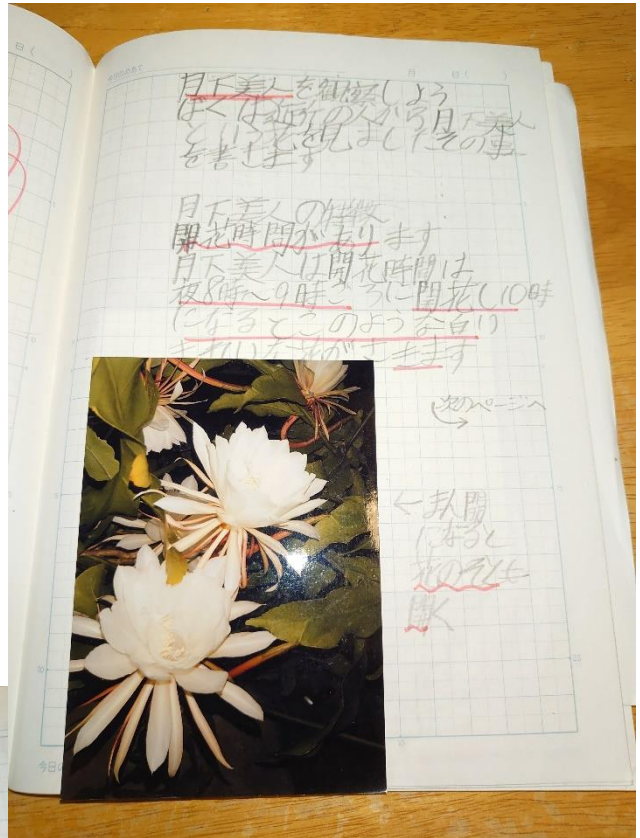 月下美人を観察しよう
ぼくは近所の人から月下美人
という花を見ましたその事
を書きます
月下美人の特徴
開花時間があります
月下美人は開花時間は
夜8時〜9時ごろに開花し10時
になるとこのような白い
きれいな花がさきます
次のページへ
←まん開
になると
開く